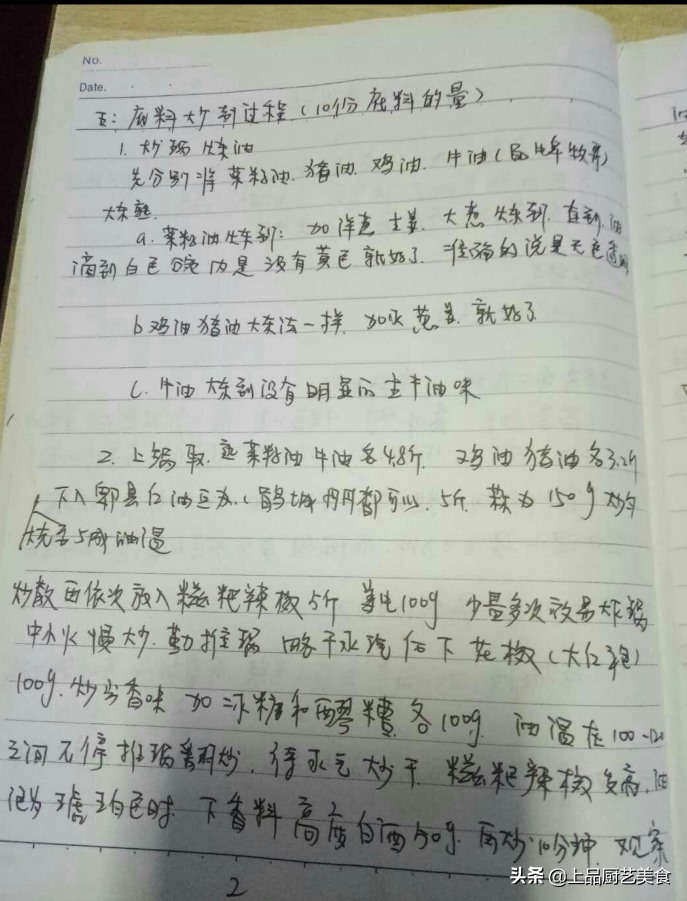 No.
Date.
五：底料炒制过程（10份底料的量）
1. 炒锅炼油
先分别将菜籽油. 猪油. 鸡油. 牛油（
炼熟.
a. 菜籽油炼制： 加洋葱 生姜. 大葱炼制. 直到油
滴到白色碗内是没有黄色就好了. 准确的说是无色透明
b 鸡油猪油炼法一样. 加水葱姜. 就好了
C. 牛油炼到没有明显的生牛油味
2. 上锅取. 熟菜籽油牛油各4.8斤. 鸡油猪油各3.2斤
下入郫县红油豆办.（鹃城 丹丹都可以. 5斤. 150g
烧至5成油温
炒散再依次放入糍粑辣椒5斤 姜 100g 少量多次 炸锅
中小火慢炒. 勤推锅 略干水汽后下花椒（大红袍）
100g. 炒出香味 加冰糖和醪糟各100g. 油温在100-120
之间不停推锅 炒. 待水气炒干. 糍粑辣椒 油
色为琥珀色时. 下香料高度白酒50g. 再炒10分钟. 观察
2
头条 @上品厨艺美食